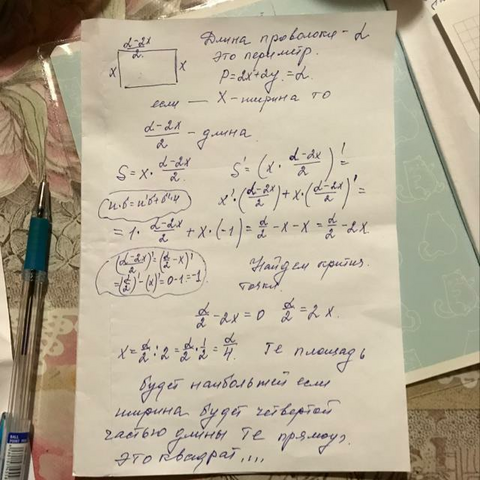 Длина проволоки - α
α-2x
2
x x
Это периметр.
P=2x+2y=α.
если — x-ширина то
α-2x/2 - длина
S = x · α-2x/2 S' = (x · α-2x/2)' =
u·в=u'в+в'u
x'·(α-2x/2)+x·(α-2x/2)'=
=1·α-2x/2 + x·(-1)=α/2 -x-x=α/2 -2x
(α-2x/2)'=(α/2 -x)'
=(α/2)'-(x)'=0-1=-1
Найдем критич.
точки.
α/2 -2x=0 α/2=2x.
x=α/2 : 2=α/2 · 1/2=α/4. Те площадь
будет наибольшей если
ширина будет четвертой
частью длины Те прямоуг.
это квадрат,...